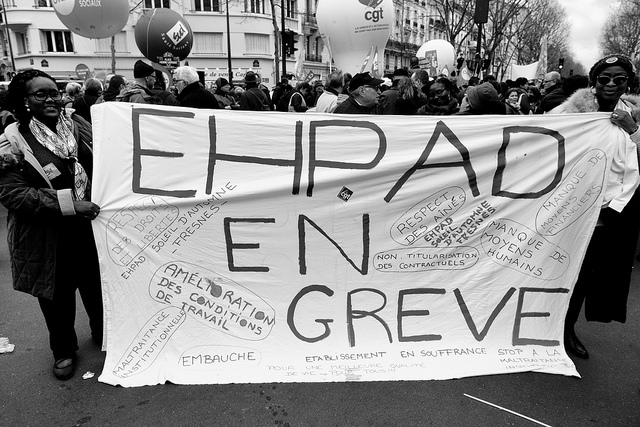 SOCIAUX
cgt
cgt
EHPAD
EN
GRÈVE
RESPECT
DES AINÉS
EHPAD
SOLEIL D'AUTOMNE
FRESNES
EHPAD
SOLEIL D'AUTOMNE
-FRESNES-
NON TITULARISATION
DES CONTRACTUELS
MANQUE DE
MOYENS
HUMAINS
MANQUE DE
MOYENS
FINANCIERS
AMÉLIORATION
DES CONDITIONS
DE TRAVAIL
MALTRAITANCE
INSTITUTIONNELLE
EMBAUCHE
ETABLISSEMENT EN SOUFFRANCE
STOP A LA
MALTRAITANCE
POUR UNE MEILLEURE QUALITÉ
DE VIE POUR TOUS!!!